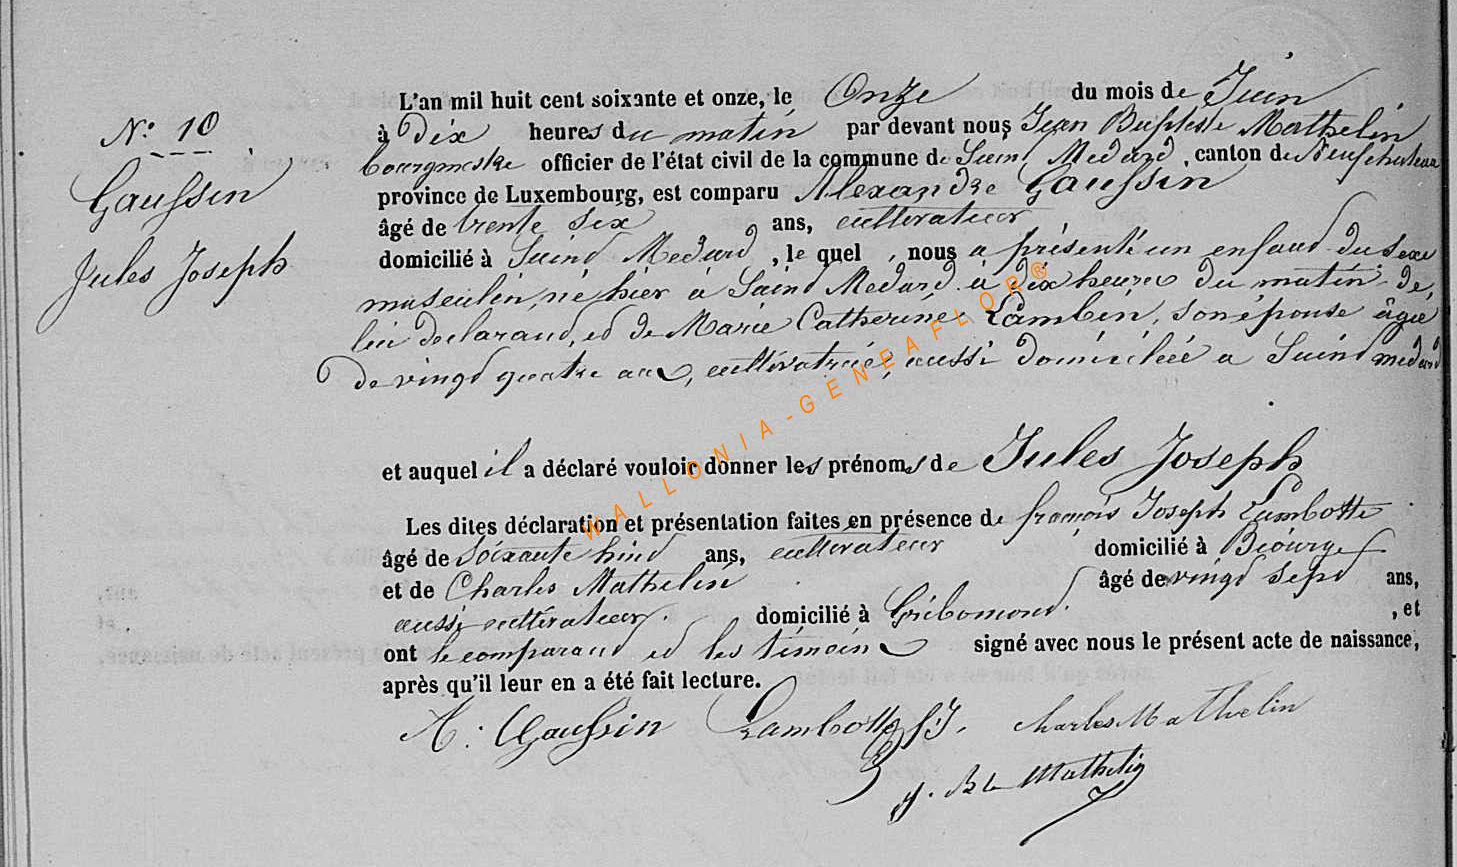 N.º 10
Gaussin
Jules Joseph
L'an mil huit cent soixante et onze, le Onze du mois de Juin
à Dix heures du matin par devant nous Jean Baptiste Mathelin
bourgmestre officier de l'état civil de la commune de Saint Medard, canton de Neufchateau
province de Luxembourg, est comparu Alexandre Gaussin
âgé de trente six ans, cultivateur
domicilié à Saint Medard, le quel, nous a présenté un enfant du sexe
masculin, né hier à Saint Medard à dix heures du matin de
lui declarant, et de Marie Catherine Lambin, son épouse âgée
de vingt quatre ans, cultivatrice, aussi domiciliée a Saint medard
et auquel il a déclaré vouloir donner les prénoms de Jules Joseph
Les dites déclaration et présentation faites en présence de françois Joseph Lambotte
âgé de soixante huit ans, cultivateur domicilié à Biourge
et de Charles Mathelin âgé de vingt sept ans,
aussi cultivateur. domicilié à Gribomont. , et
ont le comparant et les témoins signé avec nous le présent acte de naissance,
après qu'il leur en a été fait lecture.
A. Gaussin Lambotte f J. Charles Mathelin
J. Bte Mathelin
WALLONIA-GENEAFLOR®